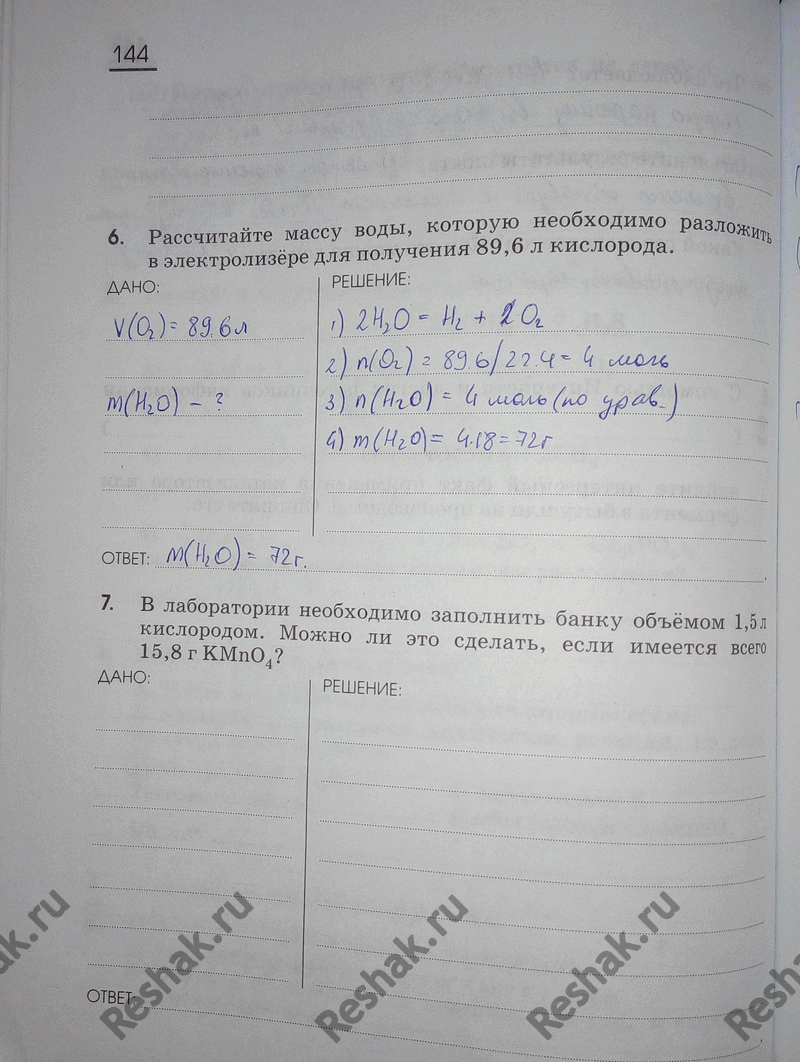 144
6. Рассчитайте массу воды, которую необходимо разложить
в электролизёре для получения 89,6 л кислорода.
ДАНО:
РЕШЕНИЕ:
V(O₂) = 89.6 л
m(H₂O) - ?
1) 2H₂O = H₂ + 2O₂
2) n(O₂) = 89.6/22.4 = 4 моль
3) n(H₂O) = 4 моль (по урав.)
4) m(H₂O) = 4.18 = 72 г
ОТВЕТ: m(H₂O) = 72 г.
7. В лаборатории необходимо заполнить банку объёмом 1,5 л
кислородом. Можно ли это сделать, если имеется всего
15,8 г KMnO₄?
ДАНО:
РЕШЕНИЕ:
ОТВЕТ:
Reshak.ru
Reshak.ru
Reshak.ru
Reshak.ru
Reshak.ru